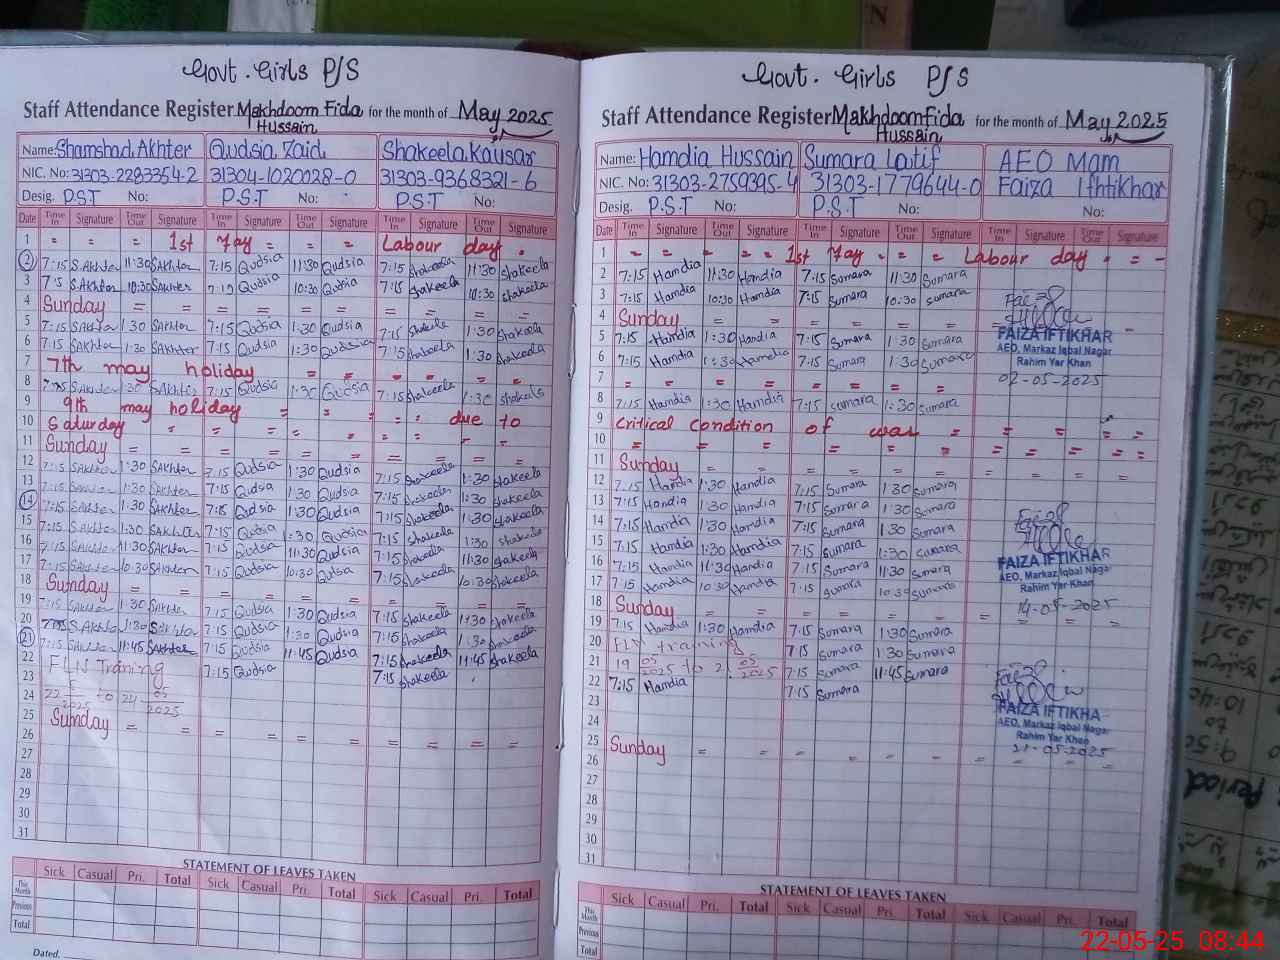 Govt. Girls P/S
Staff Attendance Register Makhdoom Fida Hussain for the month of May 2025
Name: Shamshad Akhter Qudsia Zaid Shakeela Kausar
NIC. No: 31303-2283354-2 31304-1020028-0 31303-9368321-6
Desig. P.S.T No: P.S.T No: P.S.T No:
Date Time In Signature Time Out Signature Time In Signature Time Out Signature Time In Signature Time Out Signature
1 = = = 1st May = = = Labour day
2 7:15 S.Akhter 11:30 SAkhter 7:15 Qudsia 11:30 Qudsia 7:15 Shakeela 11:30 Shakeela
3 S.Akhter 10:30 SAkhter Qudsia 10:30 Qudsia 7:15 Shakeela 10:30 Shakeela
4 Sunday = = = = = = = = = =
5 7:15 SAkhter 1:30 SAkhter 7:15 Qudsia 1:30 Qudsia 7:15 Shakeela 1:30 Shakeela
6 7:15 SAkhter 1:30 SAkhter 7:15 Qudsia 1:30 Qudssia 7:15 Shakeela 1:30 Shakeela
7 7th may holiday = = = = = = =
8 SAkhter 1:30 SAkhter 7:15 Qudsia 1:30 Qudsia 7:15 Shakeela 1:30 Shakeela
9 9th may holiday = = = = due to
10 Saturday = = = = = = = =
11 Sunday = = = = = = = = = =
12 7:15 SAkhter 1:30 SAkhter 7:15 Qudsia 1:30 Qudsia 7:15 Shakeela 1:30 Shakeela
13 7:15 SAkhter 1:30 SAkhter 7:15 Qudsia 1:30 Qudsia 7:15 Shakeela 1:30 Shakeela
14 7:15 SAkhter 1:30 SAkhter 7:15 Qudsia 1:30 Qudsia 7:15 Shakeela 1:30 Shakeela
15 7:15 SAkhter 1:30 SAkhter 7:15 Qudsia 1:30 Qudsia 7:15 Shakeela 1:30 Shakeela
16 7:15 SAkhter 11:30 SAkhter 7:15 Qudsia 11:30 Qudsia 7:15 Shakeela 11:30 Shakeela
17 7:15 SAkhter 10:30 SAkhter 7:15 Qudsia 10:30 Qudsia 7:15 Shakeela 10:30 Shakeela
18 Sunday = = = = = = = = = =
19 7:15 SAkhter 1:30 SAkhter 7:15 Qudsia 1:30 Qudsia 7:15 Shakeela 1:30 Shakeela
20 S.Akhter 1:30 SAkhter 7:15 Qudsia 1:30 Qudsia 7:15 Shakeela 1:30 Shakeela
21 7:15 S.Akhter 11:45 SAkhter 7:15 Qudsia 11:45 Qudsia 7:15 Shakeela 11:45 Shakeela
22 FLN Training 7:15 Qudsia 7:15 Shakeela
23
24 22-5-2025 to 24-05-2025
25 Sunday = = = = = = = = = =
26
27
28
29
30
31
STATEMENT OF LEAVES TAKEN
Sick Casual Pri. Total Sick Casual Pri. Total Sick Casual Pri. Total
This Month
Previous
Total
Dated.
Govt. Girls P/S
Staff Attendance Register Makhdoom Fida Hussain for the month of May 2025
Name: Hamdia Hussain Sumara Latif AEO Mam
NIC. No: 31303-2759395-4 31303-1779644-0 Faiza Ifhtikhar
Desig. P.S.T No: P.S.T No: No:
Date Time In Signature Time Out Signature Time In Signature Time Out Signature Time In Signature Time Out Signature
1 = = = = = 1st May = = = Labour day = = -
2 7:15 Hamdia 11:30 Hamdia 7:15 Sumara 11:30 Sumara
3 7:15 Hamdia 10:30 Hamdia 7:15 Sumara 10:30 Sumara
4 Sunday = = = = = =
5 7:15 Hamdia 1:30 Hamdia 7:15 Sumara 1:30 Sumara
6 7:15 Hamdia 1:30 Hamdia 7:15 Sumara 1:30 Sumara
FAIZA IFTIKHAR
AEO, Markaz Iqbal Nagar
Rahim Yar Khan
02-05-2025
7 = = = = = = = =
8 7:15 Hamdia 1:30 Hamdia 7:15 Sumara 1:30 Sumara
9 Critical condition of war = = = = =
10 = = = = = = = = = = =
11 Sunday = = = = = = = = =
12 7:15 Hamdia 1:30 Hamdia 7:15 Sumara 1:30 Sumara
13 7:15 Hamdia 1:30 Hamdia 7:15 Sumara 1:30 Sumara
14 7:15 Hamdia 1:30 Hamdia 7:15 Sumara 1:30 Sumara
15 7:15 Hamdia 1:30 Hamdia 7:15 Sumara 1:30 Sumara
16 7:15 Hamdia 11:30 Hamdia 7:15 Sumara 11:30 Sumara
17 7:15 Hamdia 10:30 Hamdia 7:15 Sumara 10:30 Sumara
FAIZA IFTIKHAR
AEO, Markaz Iqbal Nagar
Rahim Yar Khan
14-05-2025
18 Sunday = = = = = = = = =
19 7:15 Hamdia 1:30 Hamdia 7:15 Sumara 1:30 Sumara
20 FLN training 7:15 Sumara 1:30 Sumara
21 19 05 2025 to 2 05 2025 7:15 Sumara 11:45 Sumara
22 7:15 Hamdia 7:15 Sumara
23
24
FAIZA IFTIKHA
AEO, Markaz Iqbal Nagar
Rahim Yar Khan
21-05-2025
25 Sunday = = = = = = = = =
26
27
28
29
30
31
STATEMENT OF LEAVES TAKEN
Sick Casual Pri. Total Sick Casual Pri. Total Sick Casual Pri. Total
This Month
Previous
Total
N
Period
9:50
to
10:40
22-05-25 08:44